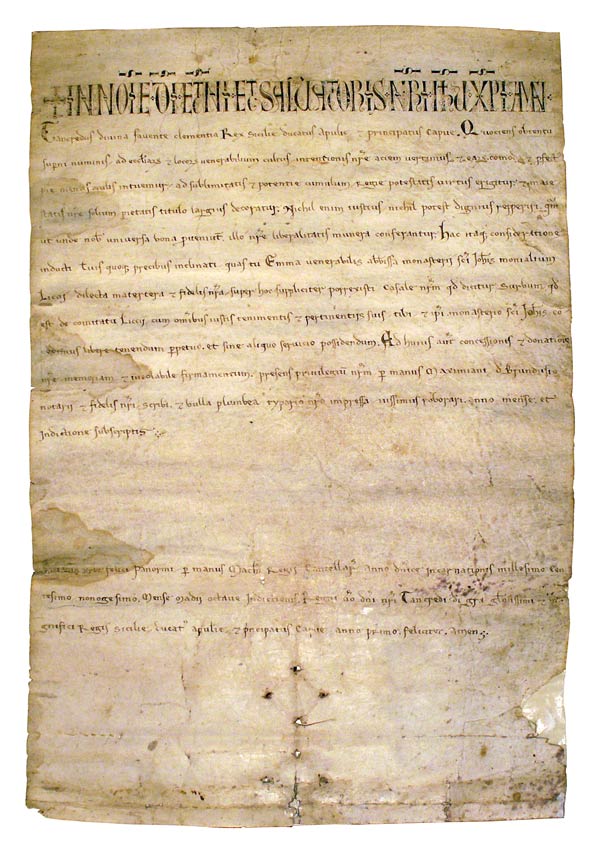 + IN NOIE DI ETNI ET SALVATORIS NRI IHU XPI AMEN
Tancredus divina favente clementia Rex Sicilie ducatus Apulie & principatus Capue. Quociens obtentu
superni numinis ad ecclias & locor venerabilium cultus intentionis nre aciem vertimus, & eas comoda &
pie mentis oculis intuemur, ad sublimitatis & potentie cumulum Regie potestatis virtus erigitur, & maie
statis nre solium pietatis titulo largius decoratur. Nichil enim iustius nichil potest dignius repperiri, qm
ut unde nob universa bona proveniunt, illo nre liberalitatis munera conferantur. Hac itaq consideratione
inducti. Tuis quoq precibus inclinati. quas tu Emma venerabilis abbissa monasterii sci Iohis monialium
Licii, dilecta matertera & fidelis nra, super hoc suppliciter porrexisti Casale nrm qd dicitur Surbum qd
est de comitatu Licii, cum omibus iustis tenimentis & pertinentiis suis tibi, & ipi monasterio sci Iohis, co
cedimus libere tenendum perpetuo, et sine aliquo servicio possidendum. Ad huius aut concessionis & donationis
nre memoriam, & inviolabile firmamentum, presens privilegiu nrm per manus Maximiani, d Brundusio
notarii & fidelis nri, scribi, & bulla plumbea typario nro impressa iussimus roborari, anno, mense, et
Indictione subscriptis
urbe felici Panormi per manus Mathi Regii Cancellar anno dnice incarnationis millesimo cen
tesimo nonogesimo, Mense Madii octave Indictionis, Regni vo dni nri Tancredi di gra gliosissimi & ma
gnifici Regis Sicilie, ducat apulie, & principatus Capue anno primo, feliciter, amen